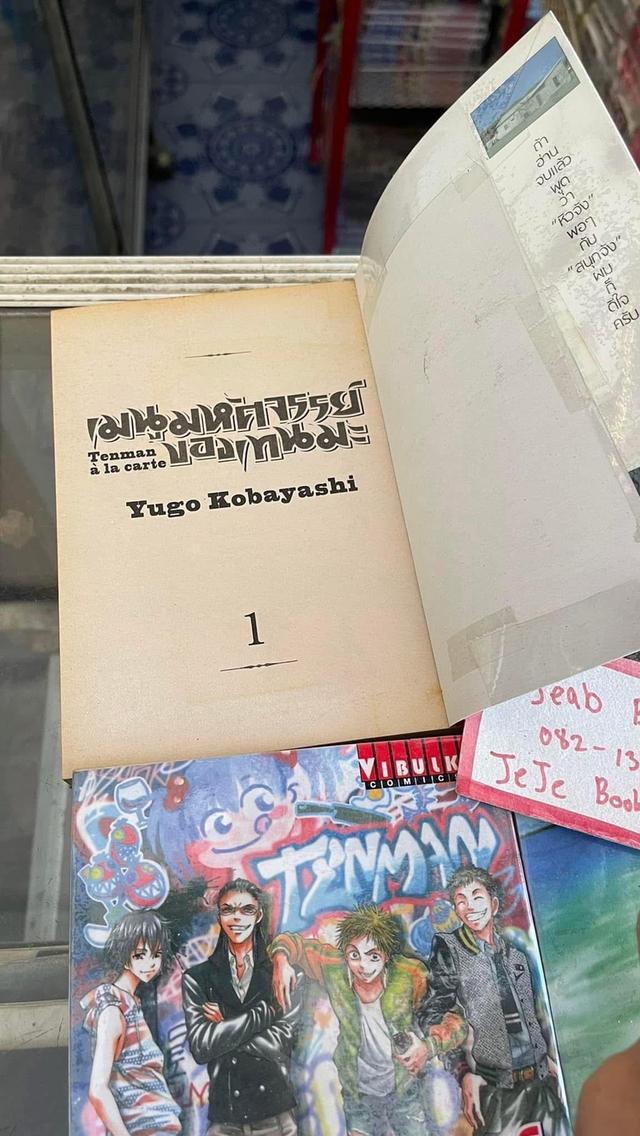 ถ้า
อ่าน
จบแล้ว
พูด
ว่า
"หิวจัง"
พอๆ
กับ
"สนุกจัง"
ผม
ก็
ดีใจ
ครับ
เมนูมหัศจรรย์
ของเทนมะ
Tenman
à la carte
Yugo Kobayashi
1
Jeab
082-13
JeJe Book
VIBULK
COMICS
TENMAN